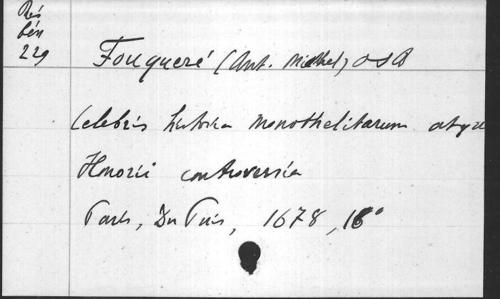 Rés
bén
229
Fouqueré (Ant. Michel) OSB
Celebris historia monothelitarum atque
Honorii controversia
Paris, Du Puis, 1678, 16°